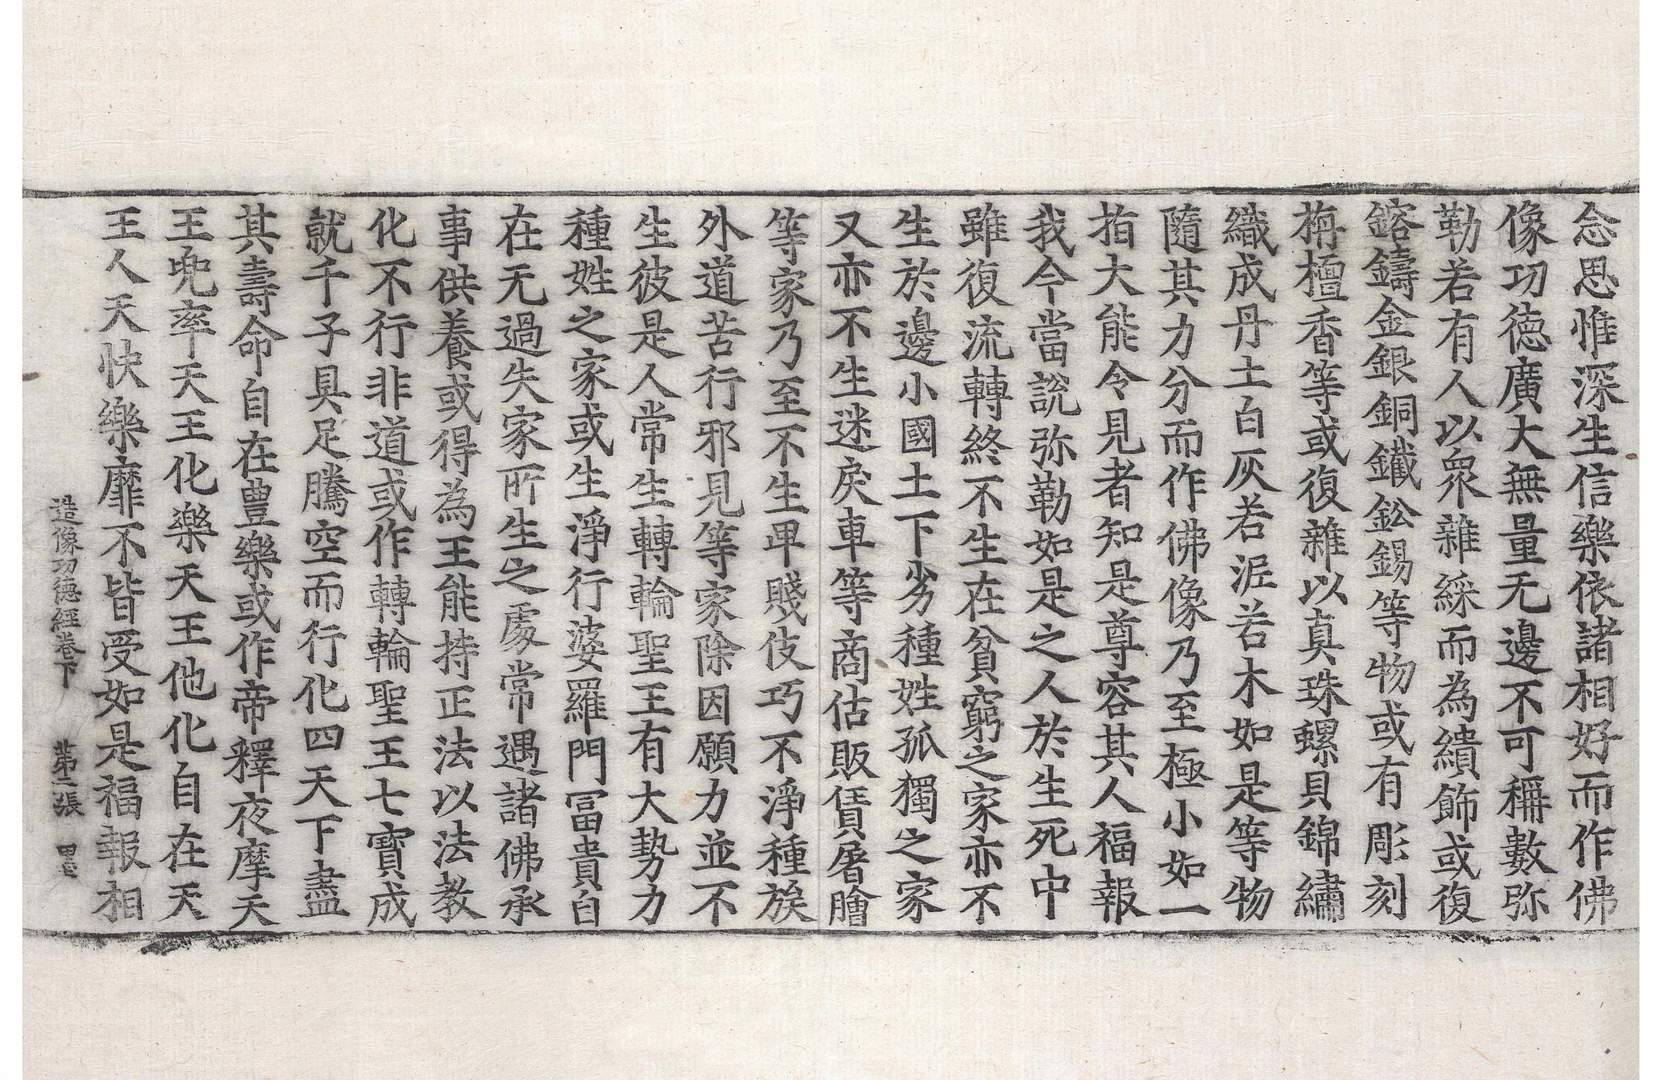 念思惟深生信樂依諸相好而作佛
像功德廣大無量无邊不可稱數弥
勒若有人以衆雜綵而為繢飾或復
鎔鑄金銀銅鐵鈆錫等物或有彫刻
栴檀香等或復雜以真珠螺貝錦繡
織成丹土白灰若泥若木如是等物
隨其力分而作佛像乃至極小如一
指大能令見者知是尊容其人福報
我今當說弥勒如是之人於生死中
雖復流轉終不生在貧窮之家亦不
生於邊小國土下劣種姓孤獨之家
又亦不生迷戾車等商估販賃屠膾
等家乃至不生卑賤伎巧不淨種族
外道苦行邪見等家除因願力並不
生彼是人常生轉輪聖王有大勢力
種姓之家或生淨行婆羅門冨貴自
在无過失家所生之處常遇諸佛承
事供養或得為王能持正法以法教
化不行非道或作轉輪聖王七寶成
就千子具足騰空而行化四天下盡
其壽命自在豊樂或作帝釋夜摩天
王兜率天王化樂天王他化自在天
王人天快樂靡不皆受如是福報相
造像功德經卷下 第二張